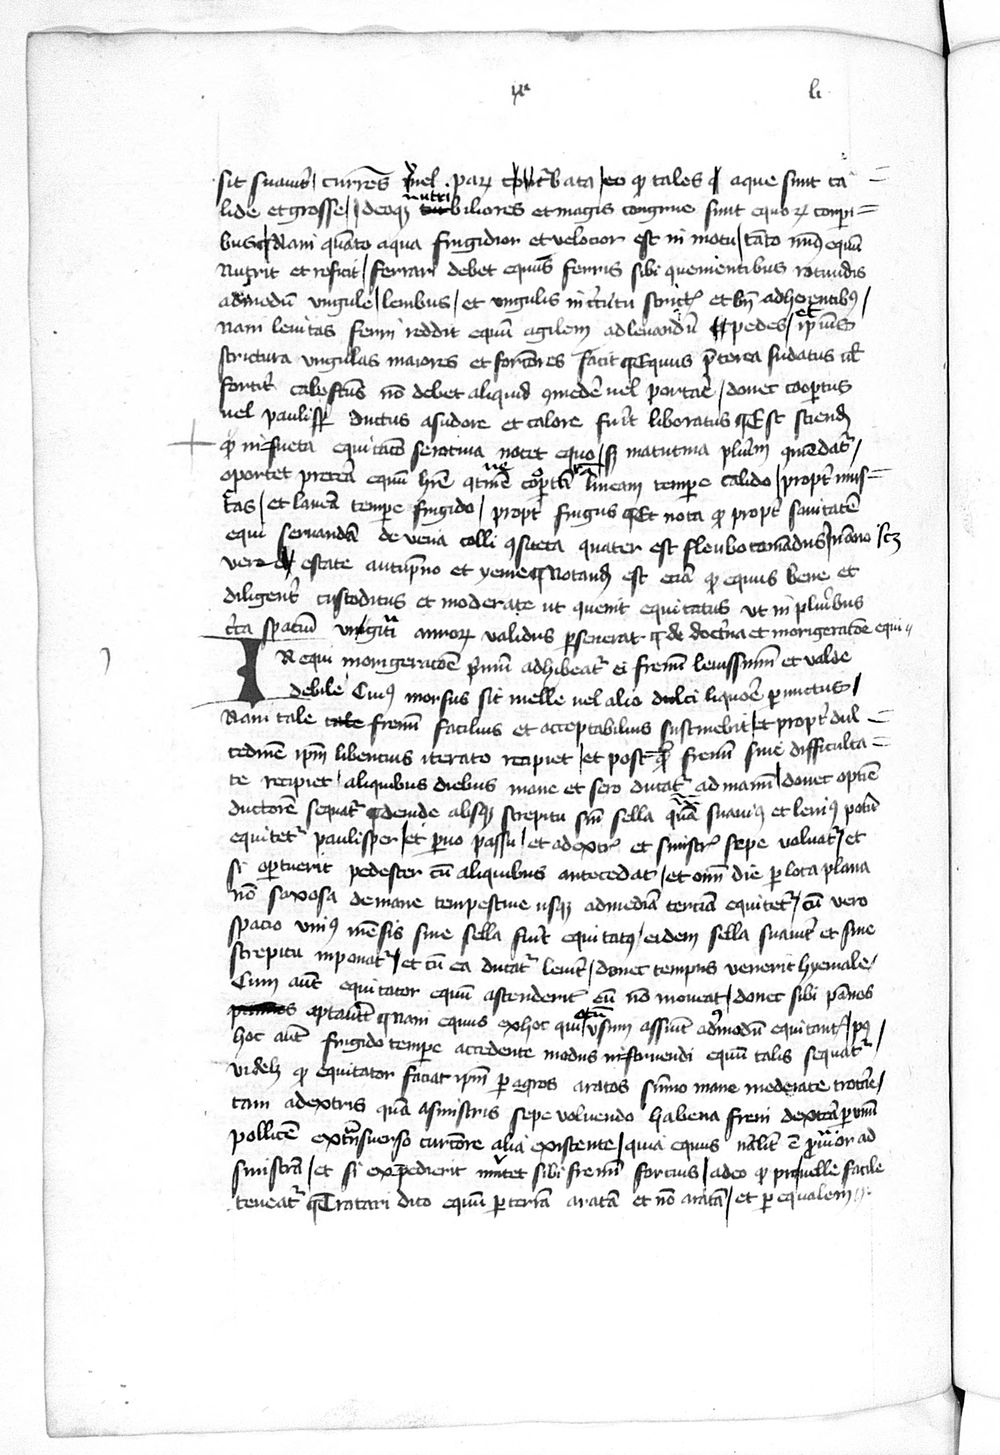 li
sit suauit(er) / currens uel par(um) t(ur)bata / eo q(uod) tales aque sunt ca =
lide et grosse / ideoq(ue) nutribiliores et magis congrue sunt equor(um) corpori =
bus Nam quanto aqua frigidior et velocior est in motu / tanto min(us) equu(m)
Nutrit et reficit / ferrari debet equus ferris sibi quenientibus rotundis
admodu(m) vngule / leuibus / et vngulis in circuitu strict(is) et b(e)n(e) adherentib(us) /
nam leuitas ferri reddit equu(m) agilem ad leuandu(m) pedes / et ip(s)ius
strictura vngulas maiores et forciores facit Equus p(re)terea sudatus u(e)l
fortit(er) calefactus no(n) debet aliquid comedere uel portare / donec coopertus
uel paulisp(er) ductus a sudore et calore fu(er)it liberatus Est sciend(um)
q(uod) insueta equitatio serotina nocet equo / s(ed) matutina plurim(um) comendat(ur) /
oportet preterea equu(m) h(abe)re lineam temp(or)e calido / propt(er) mus =
cas / et laneam temp(or)e frigido / propt(er) frigus Et nota q(uod) propt(er) sanitate(m)
equi seruanda(m) de vena colli (con)sueta quater est fleubotomandus in anno / s(cilicet)
vere estate autu(m)pno et yeme Notand(um) est etia(m) q(uod) equus bene et
diligent(er) custoditus et moderate ut (con)uenit equitatus ut in plurib(us)
c(ir)ca spatiu(m) viginti annor(um) validus p(er)seuerat de doct(ri)na et morigeratio(n)e equi
IN equi morigeratio(n)e primu(m) adhibeat(ur) ei frenu(m) leuissimu(m) et valde
debile Cui(us) morsus sit melle uel alio dulci liquore p(er)unctus /
Nam tale frenu(m) facilius et acceptabilius sustinebit / et propt(er) dul =
cedine(m) ip(su)m libencius iterato recipiet / et postq(uam) frenu(m) sine difficulta =
te recipiet / aliquibus diebus mane et sero ducat(ur) ad manu(m) / donec optime
ductore(m) sequat(ur) deinde absq(ue) strepitu sine sella qua(m) suaui(us) et leni(us) pot(er)it
equitet(ur) paulisper / et paruo passu / et a dext(ri)s et sinist(ri)s sepe voluat(ur) / et
si oportuerit pedester cu(m) aliquibus antecedat / et o(mn)i die p(er) loca plana
no(n) saxosa de mane tempestiue usq(ue) ad media(m) tercia(m) equitet(ur) / cu(m) vero
spacio vni(us) mensis sine sella fuerit equitatus / eidem sella suauit(er) et sine
strepitu imponat(ur) / et cu(m) ea ducat(ur) leuit(er) / donec tempus venerit hyemale /
Cum aut(em) equitator equu(m) ascenderit eu(m) no(n) moueat / donec sibi pannos
optauerit Nam equus ex hoc quietu(m) vsum assumit admodu(m) equitant(is) / p(ost)
hoc aut(em) frigido temp(or)e accedente modus instruendi equu(m) talis sequat(ur) /
videl(icet) q(uod) equitator faciat ip(su)m p(er) agros aratos su(m)mo mane moderate trotare /
tam a dextris qua(m) a sinistris sepe voluendo habena freni dextra p(er) vnu(m)
pollice(m) ex t(ra)nsuerso curtiore alia existente / quia equus nat(ura)lit(er) e(st) p(ro)nior ad
sinistra(m) / et si expedierit mutet sibi frenu(m) forcius / adeo q(uod) pro uelle facile
teneat(ur) Trotari dico equu(m) p(er) terra(m) arata(m) et no(n) arata(m) / et p(er) equalem